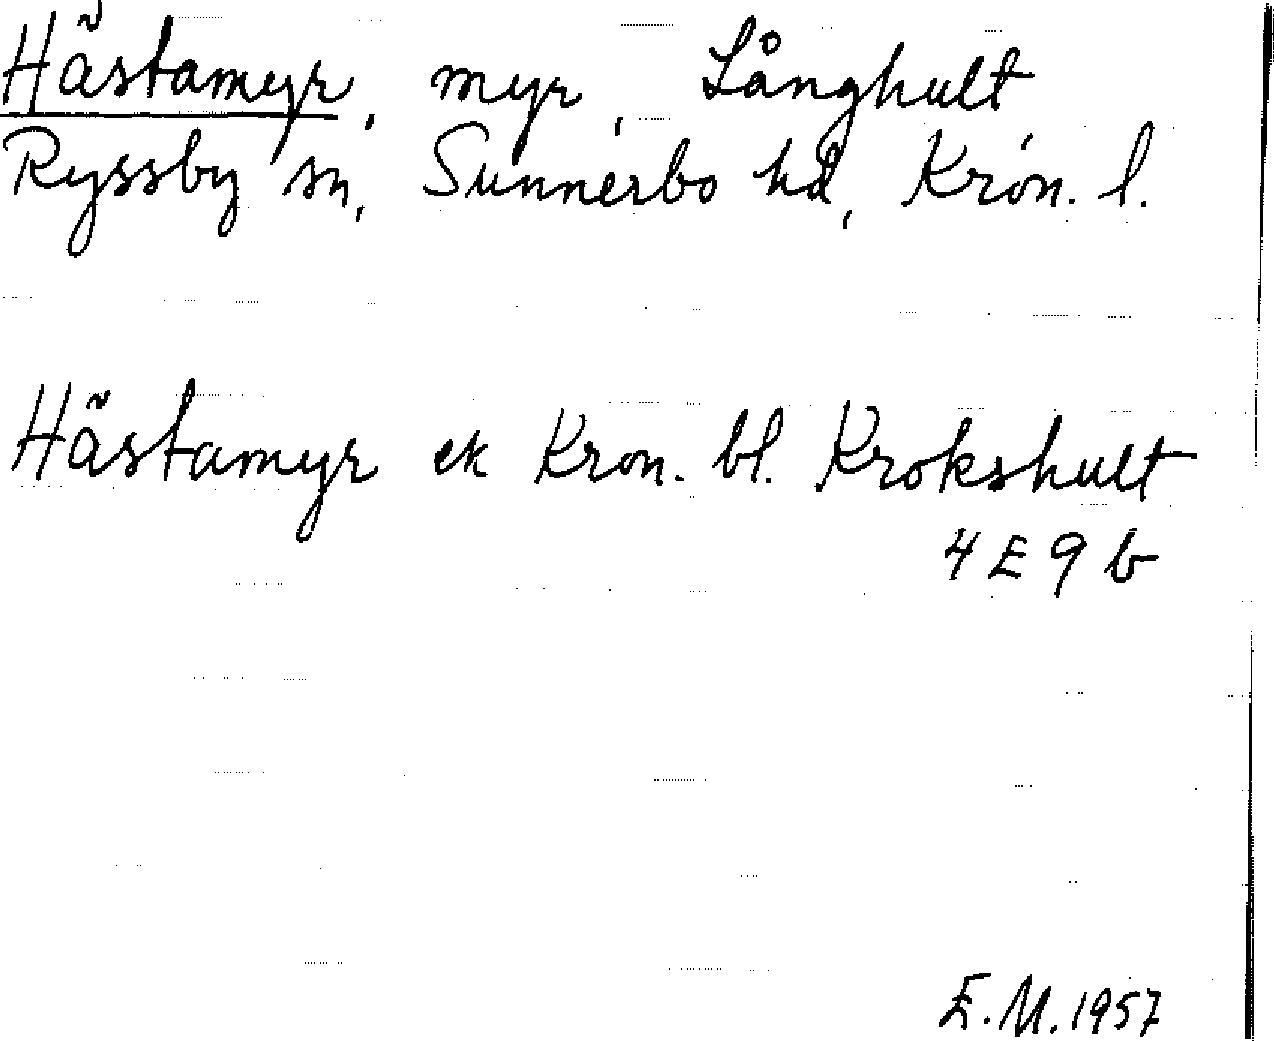 Hästamyr, myr, Långhult,
Ryssby sn, Sunnerbo hd, Kron. l.
Hästamyr ek Kron. bl. Krokshult
4 E 9 b
E.M. 1957